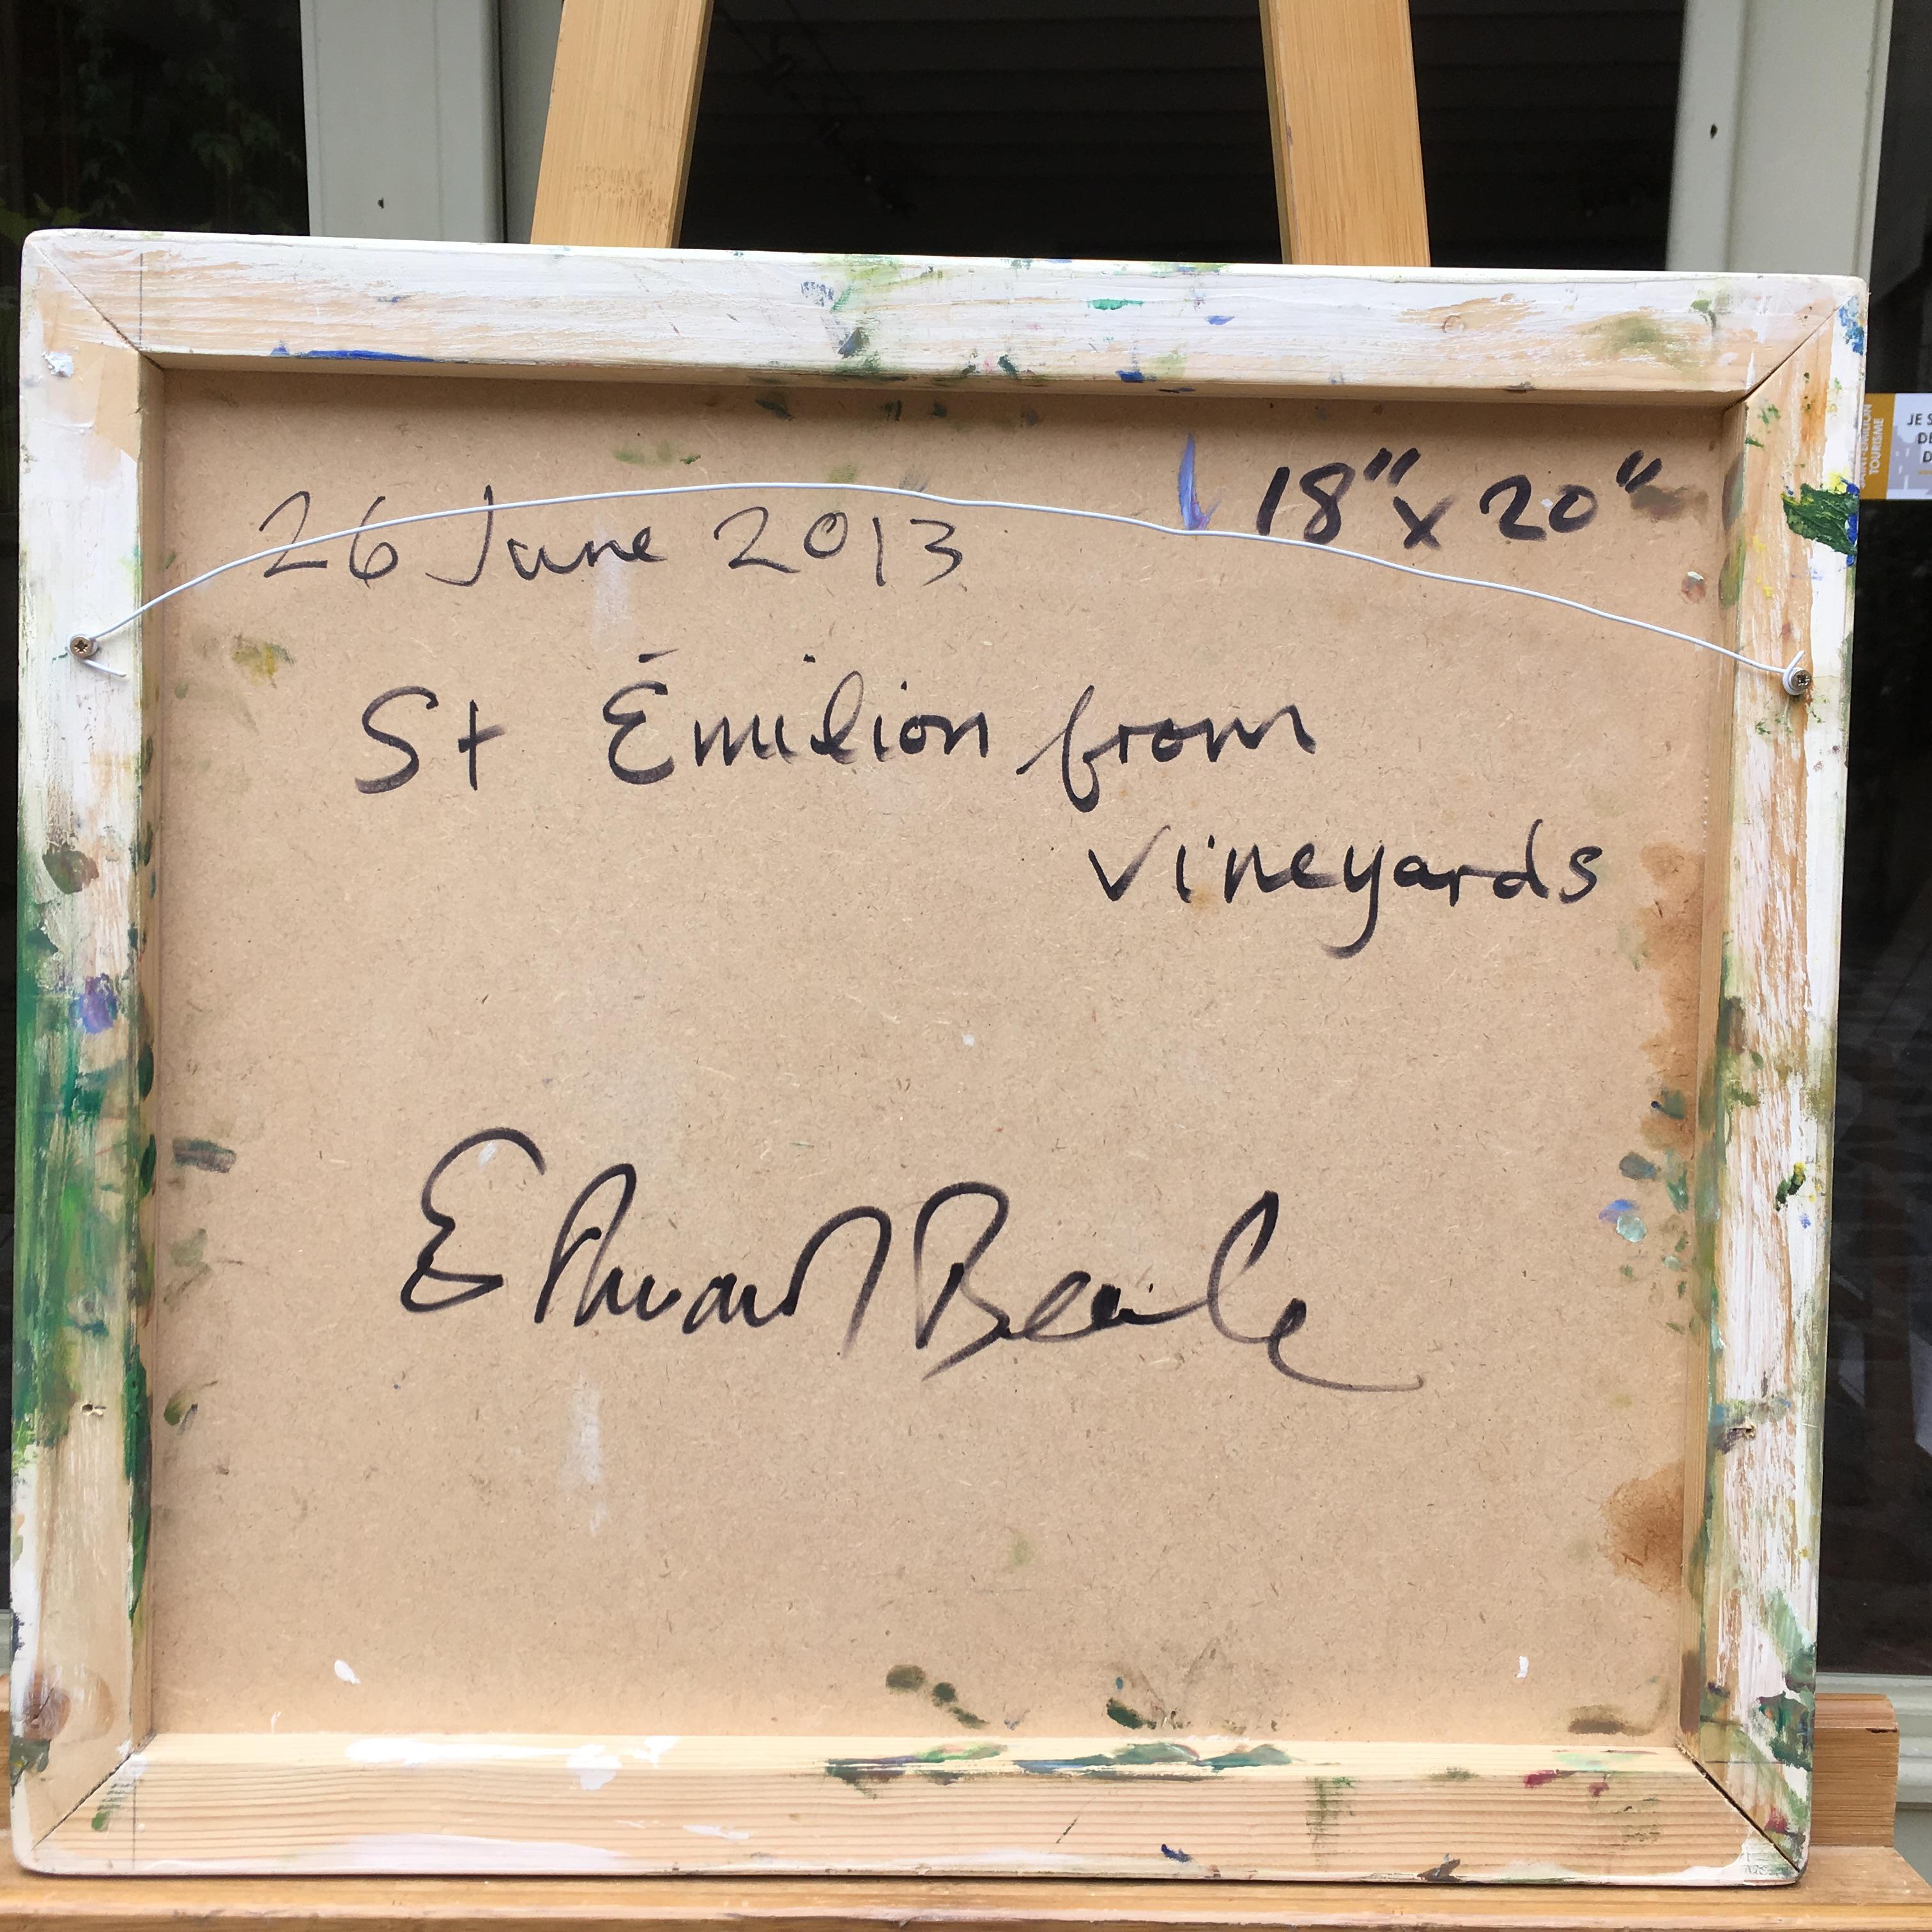 26 June 2013
18" x 20"
St Émilion from
vineyards
Edward Beale
TOURISME
JE